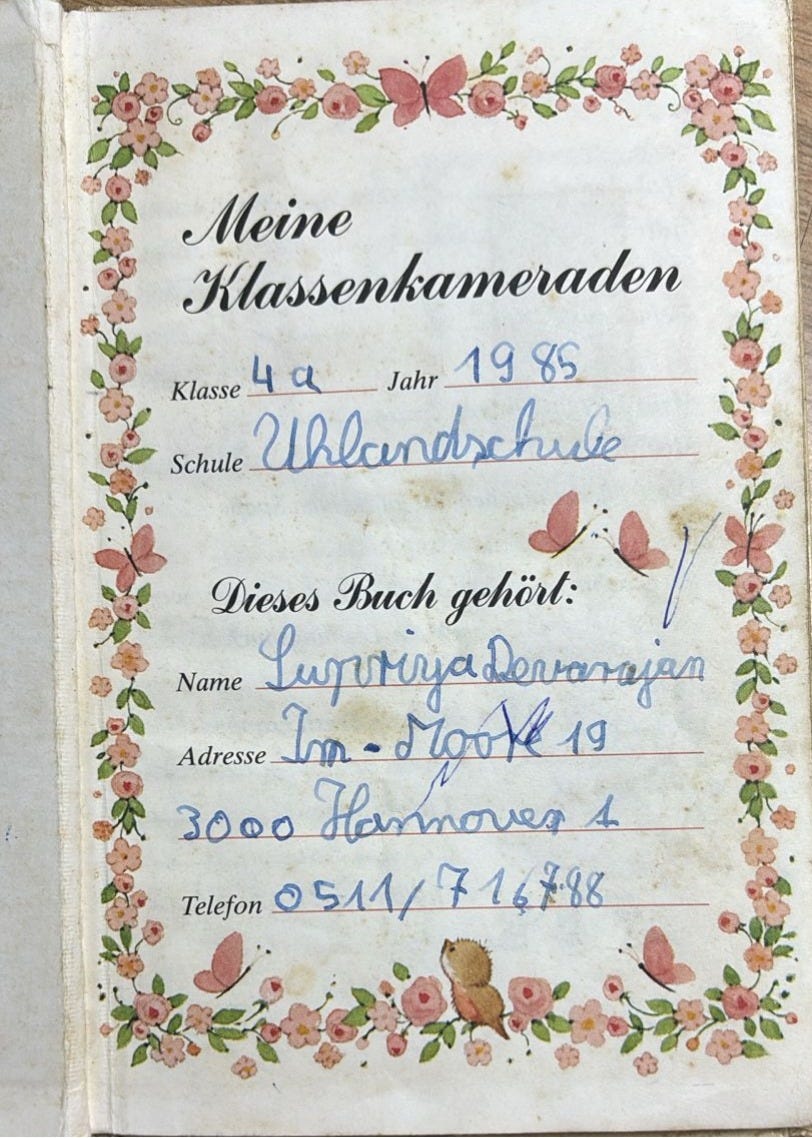 Meine
Klassenkameraden
Klasse 4a Jahr 1985
Schule Uhlandschule
Dieses Buch gehört:
Name Supriya Devarajan
Adresse Im - Moore 19
3000 Hannover 1
Telefon 0511/716788